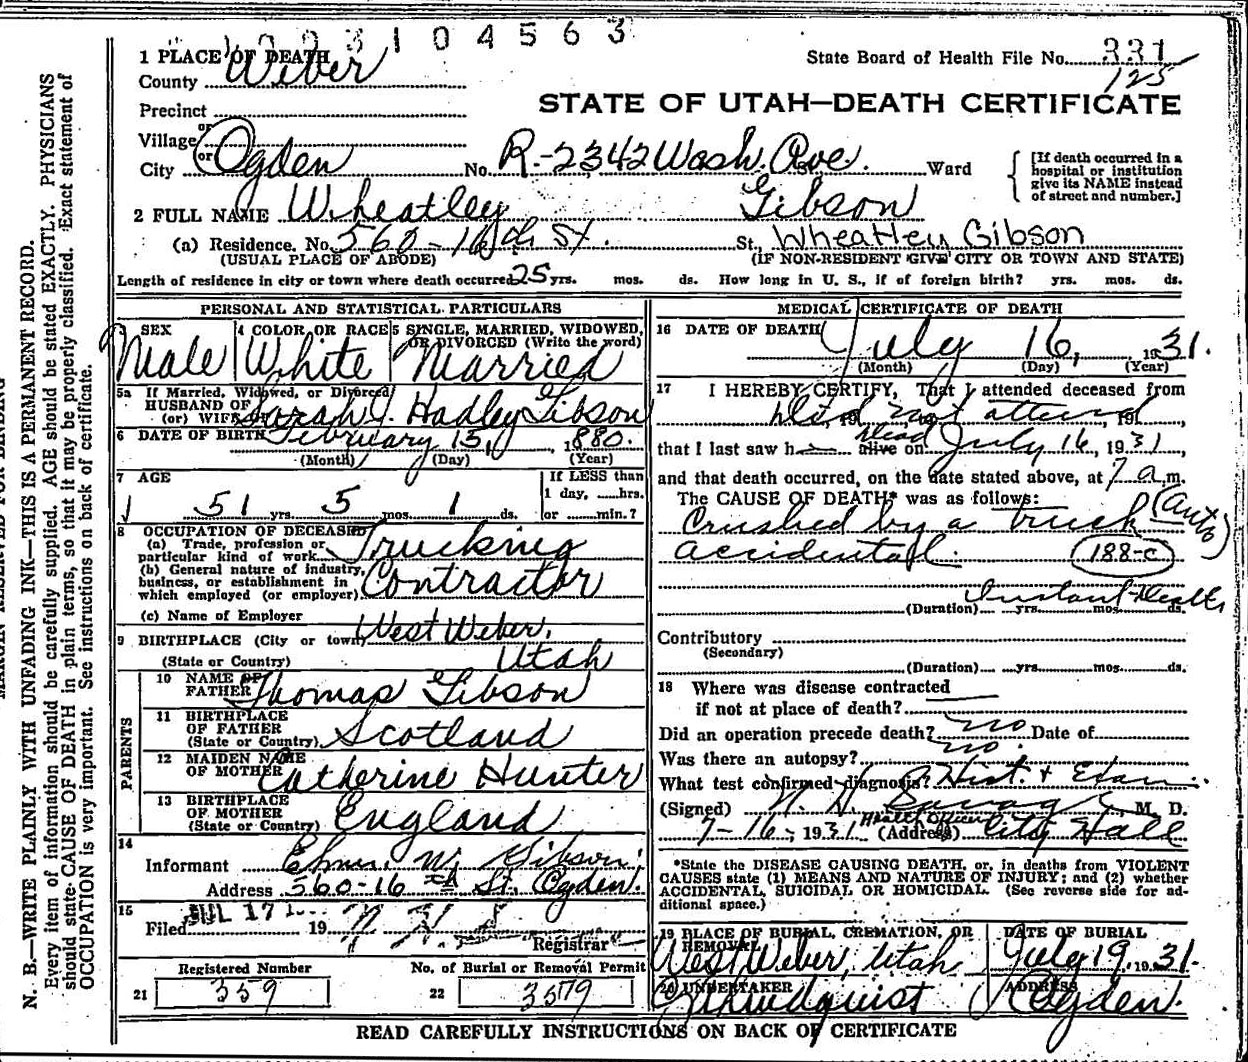 1 9 3 1 0 4 5 6 3
1 PLACE OF DEATH
County Weber
State Board of Health File No. 331
125
STATE OF UTAH—DEATH CERTIFICATE
Precinct
or
Village
or
City Ogden No. R-2342 Wash. Ave. Ward
[If death occurred in a hospital or institution give its NAME instead of street and number.]
2 FULL NAME Wheatley Gibson
(a) Residence. No. 560-16th St. St., Wheatley Gibson
(USUAL PLACE OF ABODE) (IF NON-RESIDENT GIVE CITY OR TOWN AND STATE)
Length of residence in city or town where death occurred 25 yrs. mos. ds. How long in U. S., if of foreign birth? yrs. mos. ds.
PERSONAL AND STATISTICAL PARTICULARS
3 SEX Male
4 COLOR OR RACE White
5 SINGLE, MARRIED, WIDOWED, OR DIVORCED (Write the word) Married
5a If Married, Widowed, or Divorced
HUSBAND OF
(or) WIFE Sarah J. Hadley Gibson
6 DATE OF BIRTH February 15, 1880.
(Month) (Day) (Year)
7 AGE
51 yrs. 5 mos. 1 ds.
If LESS than
1 day, ......hrs.
or ......min.?
8 OCCUPATION OF DECEASED
(a) Trade, profession or
particular kind of work Trucking
(b) General nature of industry,
business, or establishment in
which employed (or employer) Contractor
(c) Name of Employer
9 BIRTHPLACE (City or town) West Weber,
(State or Country) Utah
PARENTS
10 NAME OF
FATHER Thomas Gibson
11 BIRTHPLACE
OF FATHER
(State or Country) Scotland
12 MAIDEN NAME
OF MOTHER Catherine Hunter
13 BIRTHPLACE
OF MOTHER
(State or Country) England
14
Informant W. Gibson
Address 560-16th St. Ogden.
15
Filed JUL 17 19
Registrar
Registered Number
21 359
No. of Burial or Removal Permit
22 3579
MEDICAL CERTIFICATE OF DEATH
16 DATE OF DEATH July 16, 1931.
(Month) (Day) (Year)
17 I HEREBY CERTIFY, That I attended deceased from
Did not attend
that I last saw h dead alive on July 16, 1931,
and that death occurred, on the date stated above, at 7 a.m.
The CAUSE OF DEATH* was as follows:
Crushed by a truck (Auto)
accidental. 188-c
Instant Death
(Duration) yrs. mos. ds.
Contributory
(Secondary)
(Duration) yrs. mos. ds.
18 Where was disease contracted
if not at place of death?
Did an operation precede death? no Date of
Was there an autopsy? no.
What test confirmed diagnosis? Hist. + Exam
(Signed) M. D.
7-16-, 1931 (Address) Health Officer City Hall
*State the DISEASE CAUSING DEATH, or, in deaths from VIOLENT
CAUSES state (1) MEANS AND NATURE OF INJURY; and (2) whether
ACCIDENTAL, SUICIDAL OR HOMICIDAL. (See reverse side for ad-
ditional space.)
19 PLACE OF BURIAL, CREMATION, OR
REMOVAL
West Weber, Utah
DATE OF BURIAL
July 19, 1931.
20 UNDERTAKER
ADDRESS
Ogden.
READ CAREFULLY INSTRUCTIONS ON BACK OF CERTIFICATE
N. B.—WRITE PLAINLY WITH UNFADING INK—THIS IS A PERMANENT RECORD.
Every item of information should be carefully supplied. AGE should be stated EXACTLY. PHYSICIANS
should state CAUSE OF DEATH in plain terms, so that it may be properly classified. Exact statement of
OCCUPATION is very important. See instructions on back of certificate.